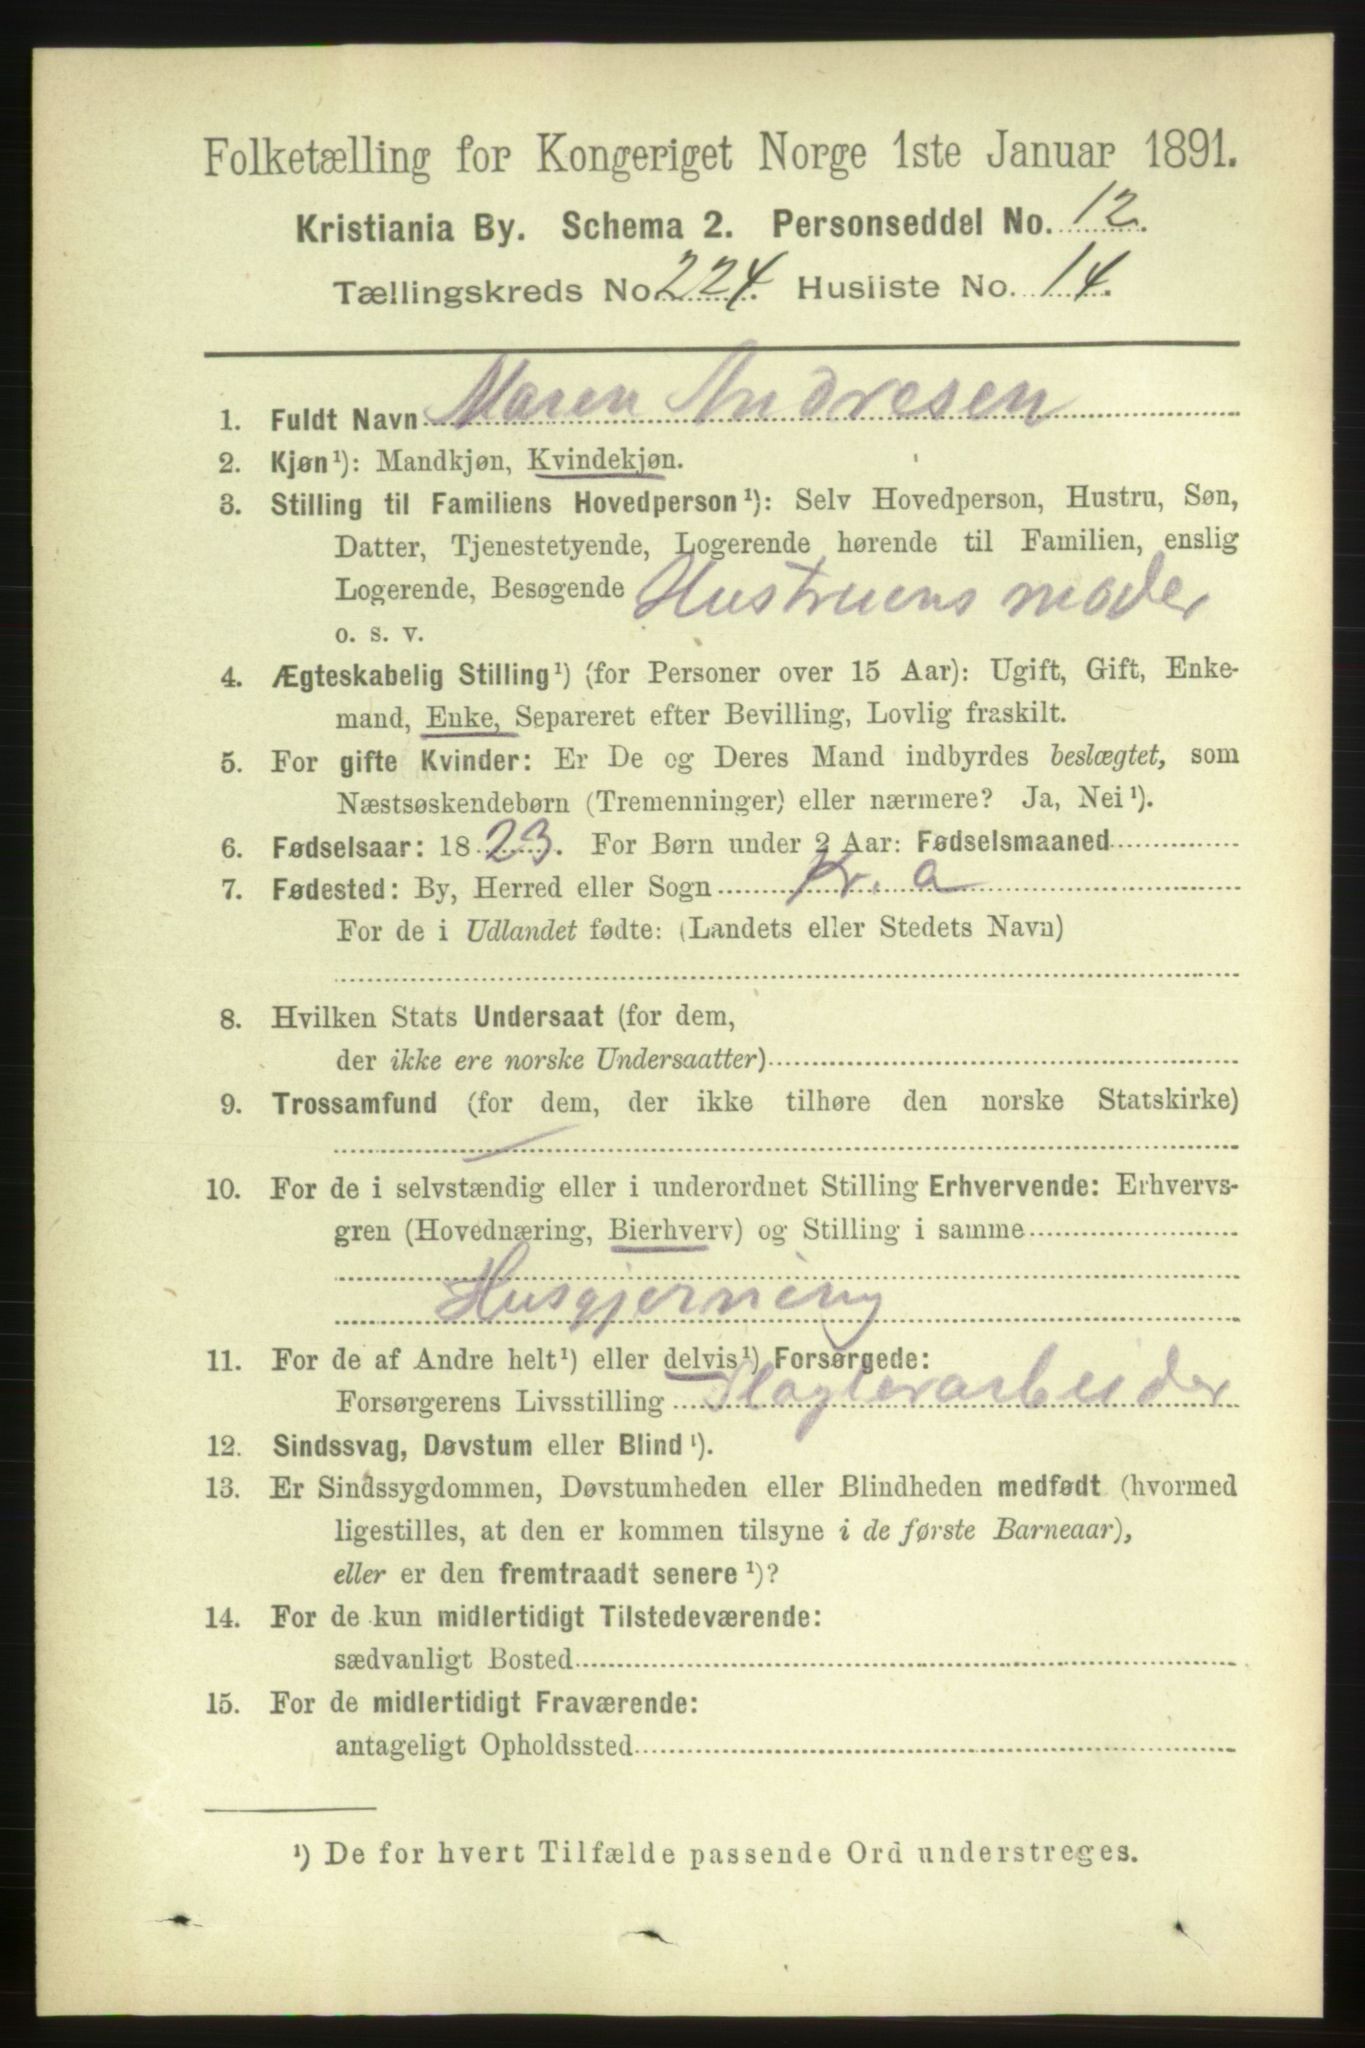 Folketælling for Kongeriget Norge 1ste Januar 1891.
Kristiania By. Schema 2. Personseddel No. 12.
Tællingskreds No. 224. Husliste No. 14.
1. Fuldt Navn Maren Andresen
2. Kjøn¹): Mandkjøn, Kvindekjøn.
3. Stilling til Familiens Hovedperson¹): Selv Hovedperson, Hustru, Søn,
Datter, Tjenestetyende, Logerende hørende til Familien, enslig
Logerende, Besøgende Hustruens moder
o. s. v.
4. Ægteskabelig Stilling¹) (for Personer over 15 Aar): Ugift, Gift, Enke-
mand, Enke, Separeret efter Bevilling, Lovlig fraskilt.
5. For gifte Kvinder: Er De og Deres Mand indbyrdes beslægtet, som
Næstsøskendebørn (Tremenninger) eller nærmere? Ja, Nei¹).
6. Fødselsaar: 1823. For Børn under 2 Aar: Fødselsmaaned
7. Fødested: By, Herred eller Sogn Kr. a
For de i Udlandet fødte: (Landets eller Stedets Navn)
8. Hvilken Stats Undersaat (for dem,
der ikke ere norske Undersaatter)
9. Trossamfund (for dem, der ikke tilhøre den norske Statskirke)
10. For de i selvstændig eller i underordnet Stilling Erhvervende: Erhvervs-
gren (Hovednæring, Bierhverv) og Stilling i samme
Husgjerning
11. For de af Andre helt¹) eller delvis¹) Forsørgede:
Forsørgerens Livsstilling Slagterarbeider
12. Sindssvag, Døvstum eller Blind¹).
13. Er Sindssygdommen, Døvstumheden eller Blindheden medfødt (hvormed
ligestilles, at den er kommen tilsyne i de første Barneaar),
eller er den fremtraadt senere¹)?
14. For de kun midlertidigt Tilstedeværende:
sædvanligt Bosted
15. For de midlertidigt Fraværende:
antageligt Opholdssted
¹) De for hvert Tilfælde passende Ord understreges.